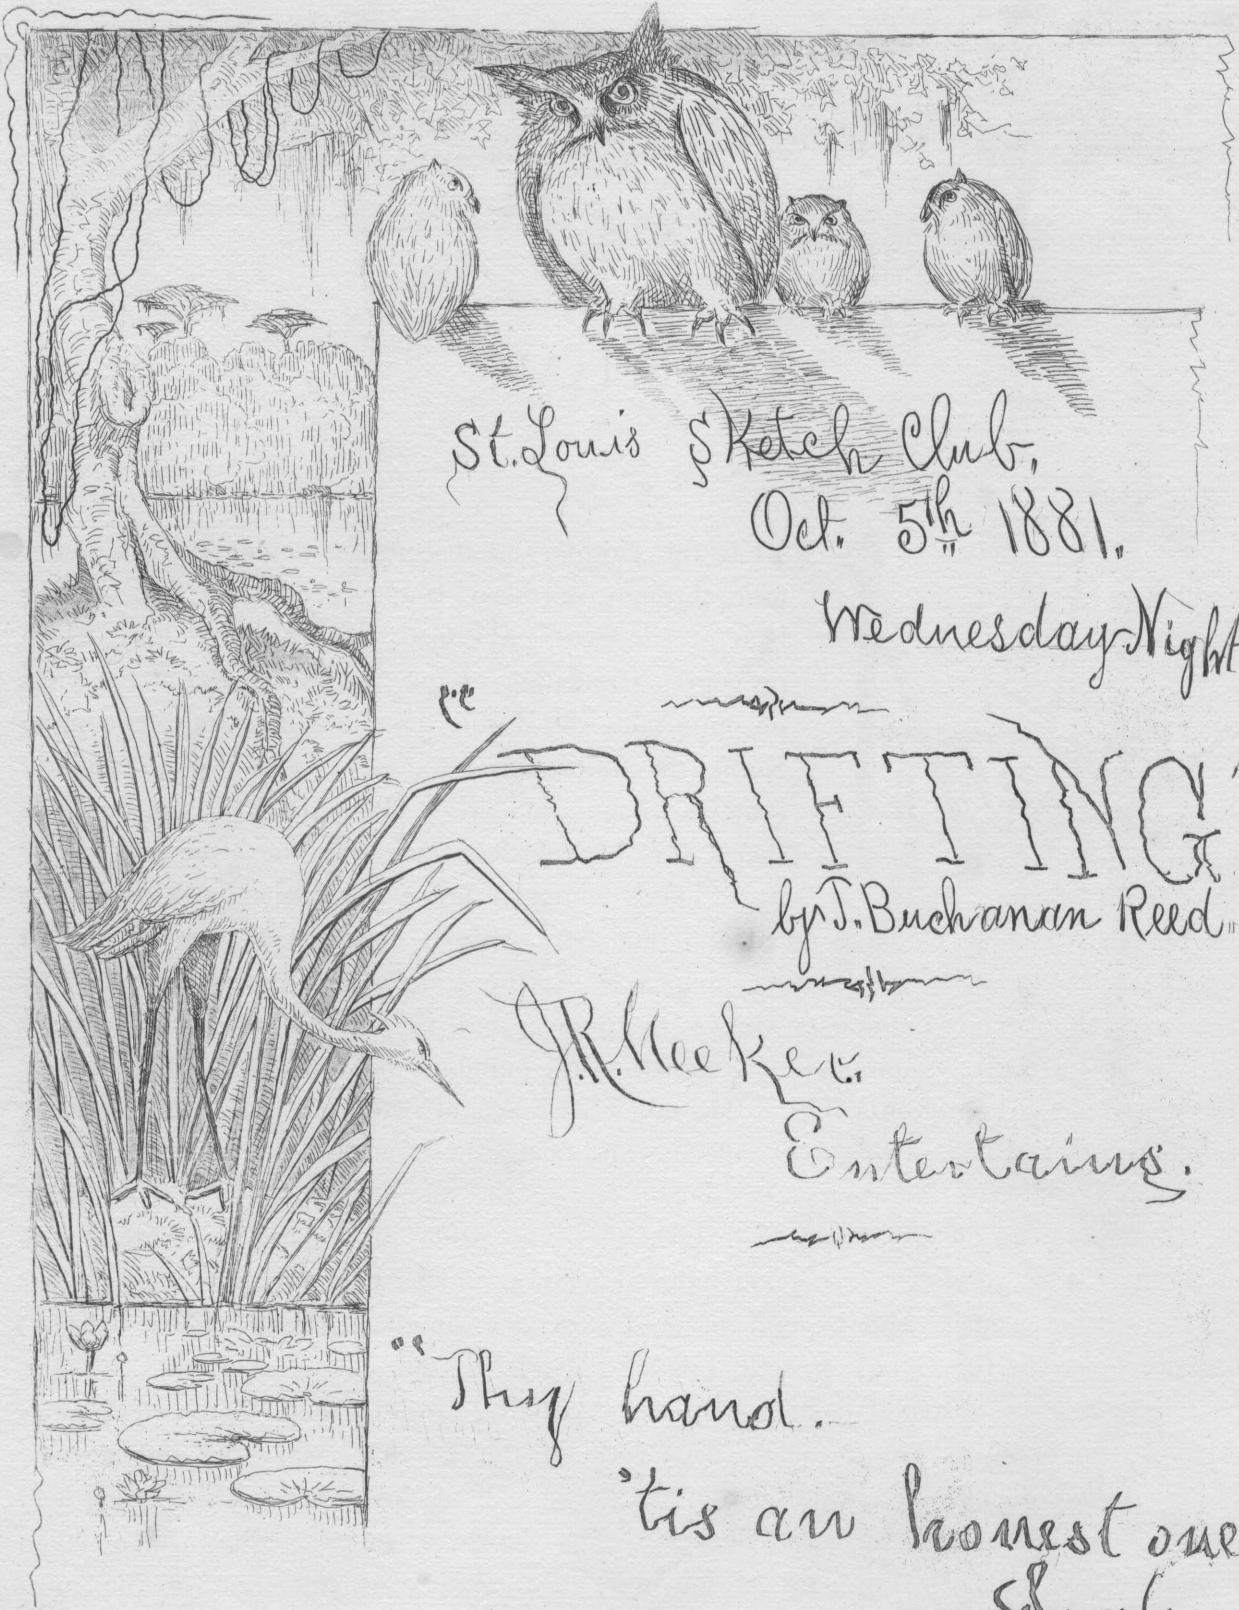 St. Louis Sketch Club,
Oct. 5th 1881.
Wednesday Night
"DRIFTING"
by T. Buchanan Reed.
J.R. Meeker.
Entertains.
"Thy hand.
'tis an honest one